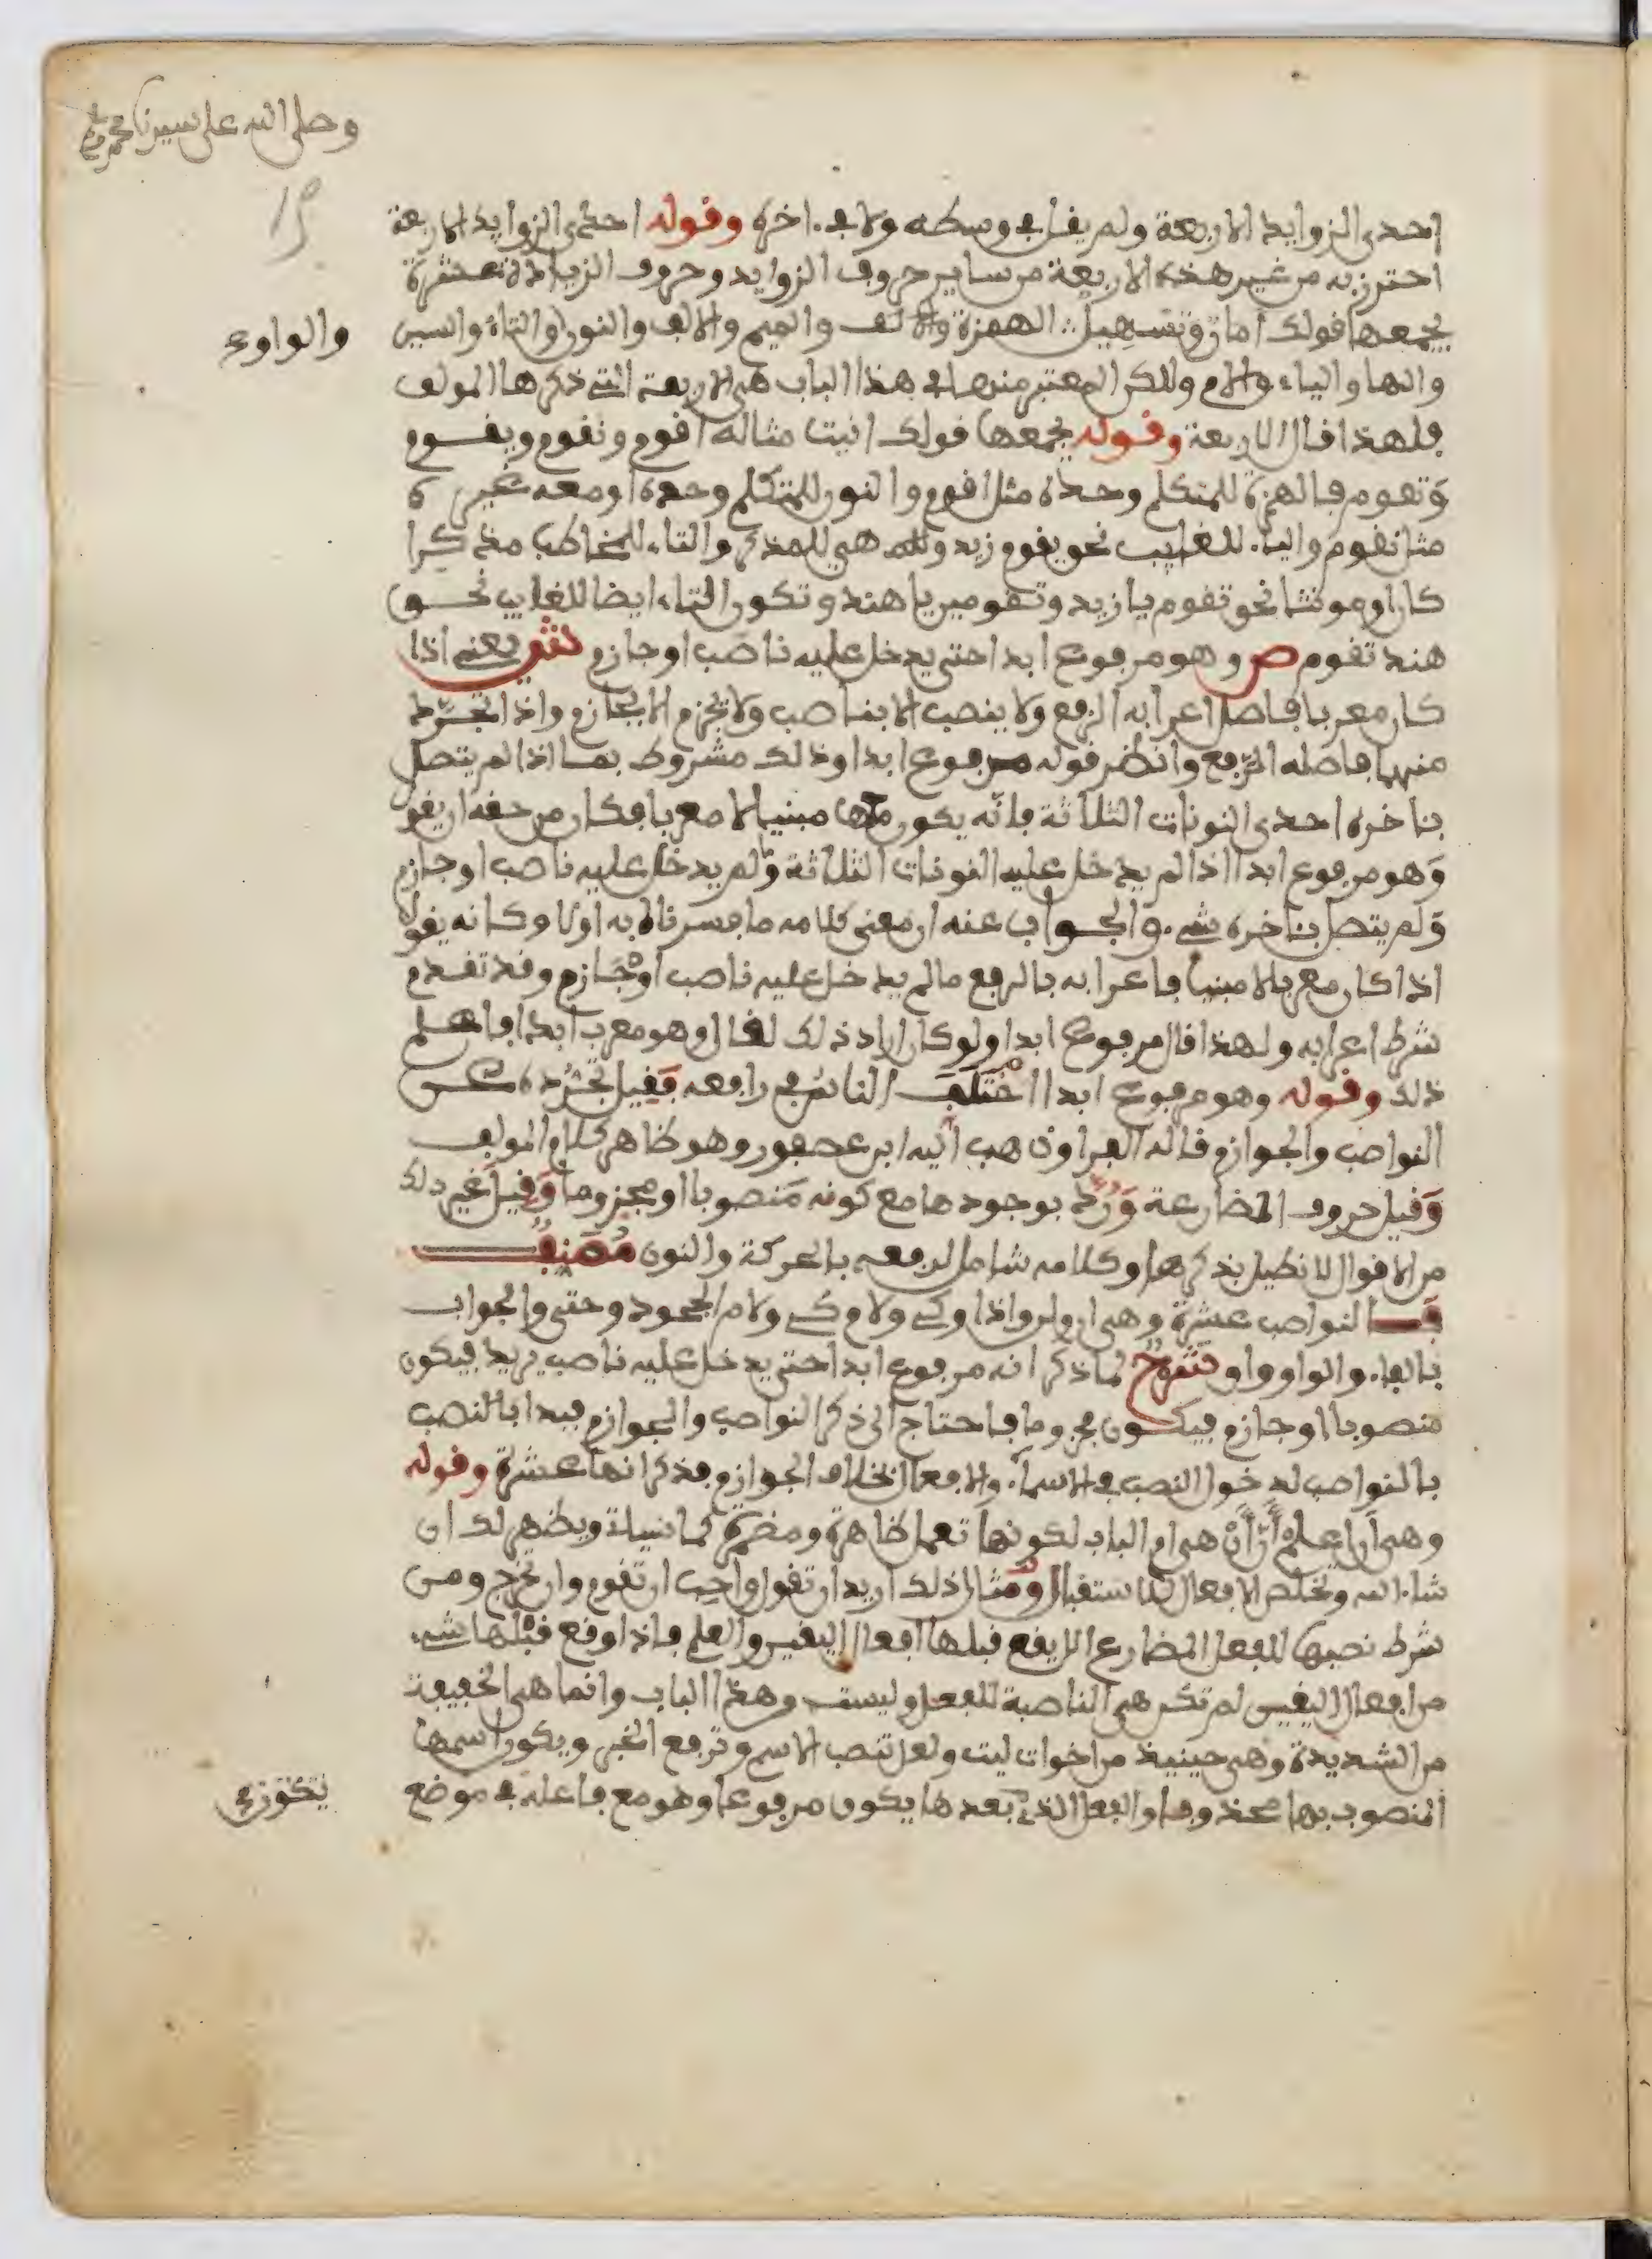 وصلى الله على سيدنا محمد
احدى الزوايد الاربعة ولم يقل في وسطه ولا في ءاخره وقوله احدى الزوايد الاربعة
احترز به من غير هذه الاربعة من ساير حروف الزوايد وحروف الزيادة عشرة
يجمعها قولك امان وتسهيل الهمزة والالف والميم والالف والنون والتاء والسين
والواو
والها والياء والام ولاكن المعتبر منها في هذا الباب هي الاربعة التي ذكرها المولف
فلهذا قال الاربعة وقوله يجمعها قولك انيت مثاله اقوم ونقوم ويقوم
وتقوم فالهمزة للمتكلم وحده مثل اقوم والنون للمتكلم وحده او معه غيره
مثل نقوم والياء للغايب نحو يقوم زيد هي للمذكر والتاء للمخاطب مذكرا
كان او مونثا نحو تقوم يا زيد وتقومين يا هند وتكون التاء ايضا للغايب نحو
هند تقوم ص وهو مرفوع ابدا حتى يدخل عليه ناصب او جازم يعني اذا
كان معربا فاصل اعرابه الرفع ولا ينصب الا بناصب ولا يجزم الا بجازم واذا تجرد
منهما فاصله الرفع وانظر قوله مرفوع ابدا وذلك مشروط بما اذا لم يتصل
بئاخره احدى النونات الثلاثة فانه يكون مبنيا لا معربا فكان من حقه ان يقول
وهو مرفوع ابدا اذا لم يدخل عليه النونات الثلاثة ولم يدخل عليه ناصب او جازم
ولم يتصل بئاخره شيء والجواب عنه ان معنى كلامه ما فسرناه به اولا وكانه يقول
اذا كان معربا لا مبنيا فاعرابه بالرفع ما لم يدخل عليه ناصب او جازم وقد تقدم
شرط اعرابه ولهذا قال مرفوع ابدا ولو كان اراد ذلك لقال وهو معرب ابدا فافهم
ذلك وقوله وهو مرفوع ابدا اختلف الناس في رافعه فقيل تجرده عن
النواصب والجوازم قاله الفرا وذهب اليه ابن عصفور وهو ظاهر كلام المولف
وقيل حروف المضارعة ورد بوجودها مع كونه منصوبا او مجزوما وقيل غير ذلك
من الاقوال لا نطيل بذكرها وكلامه شامل لرفعه بالحركة والنون مصنف
فالنواصب عشرة وهي ان ولن واذا وكي ولام كي ولام الجحود وحتى والجواب
بالفاء والواو واو شرح لما ذكر انه مرفوع ابدا حتى يدخل عليه ناصب يريد فيكون
منصوبا او جازم فيكون مجزوما فاحتاج الى ذكر النواصب والجوازم فبدا بالنصب
بالنواصب لدخول النصب في الاسماء والافعال بخلاف الجوازم فذكر انها عشرة وقوله
وهي ان اعلم ان ان هي ام الباب لكونها تعمل ظاهرة ومضمرة كما سياتي ويظهر لك ان
شاء الله وتخلص الافعال للاستقبال ومثال ذلك اريد ان تقول واحب ان تقوم وان تخرج ومن
شرط نصبها للفعل المضارع الا يقع قبلها افعال اليقين والعلم فاذا وقع قبلها شيء
من افعال اليقين لم تكن هي الناصبة للفعل وليست وهذا الباب وانما هي الخفيفة
من الشديدة وهي حينيذ من اخوات ليت ولعل تنصب الاسم وترفع الخبر ويكون اسمها
المنصوب بها محذوفا والفعل الذي بعدها يكون مرفوعا وهو مع فاعله في موضع